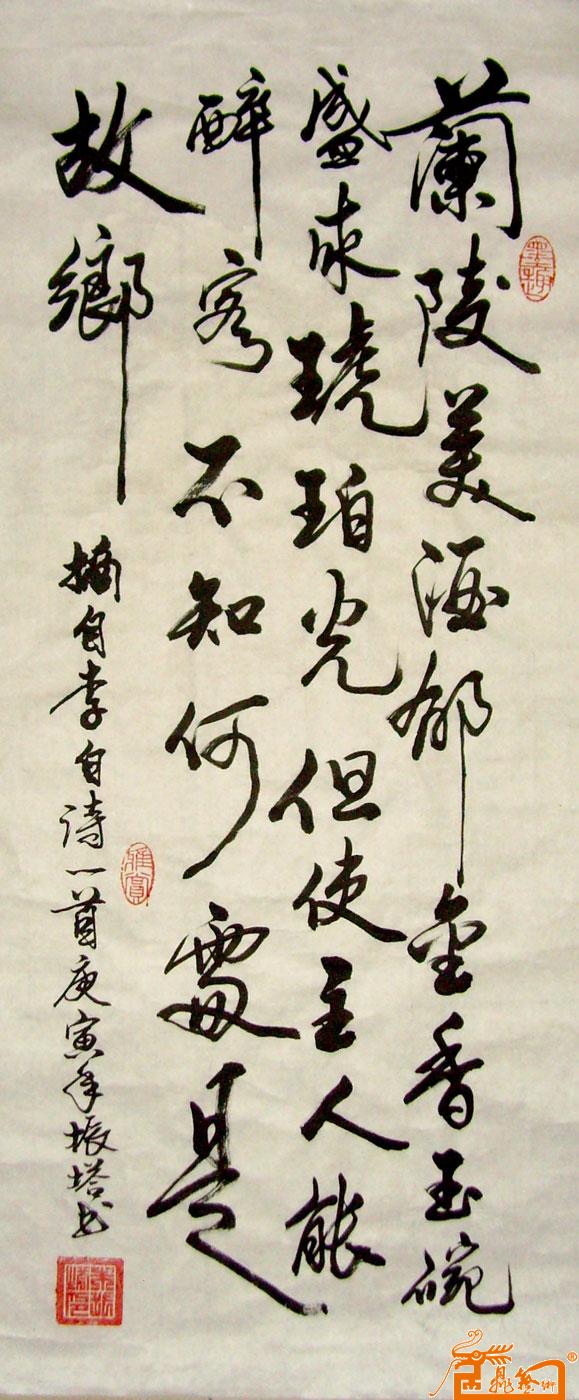 蘭陵美酒郁金香玉碗
盛來琥珀光但使主人能
醉客不知何處是
故鄉
摘自李白诗一首庚寅年振塔书
墨趣
雅赏